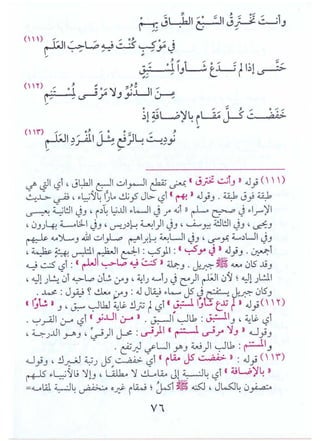 وأنت تخترق السبع الطباق بهم
في موكب كنت فيه صاحب العلم (١١١)
حتى إذا لم تدع شأوا لمستبق
من الدنو ولا مرقى لمستنم (١١٢)
خفضت كل مقام بالإضافة إذ
نوديت بالرفع مثل المفرد العلم (١١٣)
(١١١) قوله « وأنت تخترق » بمعنى تقطع السموات السبع الطباق ، أي التي هي
طبقة فوق طبقة . وقوله « بهم » أي حال كونك مارًّا بالأنبياء ، ففي حديث
الإسراء في صحيح مسلم « أنه مر في السماء الدنيا بآدم ، وفي الثانية بعيسى
ويحيى ، وفي الثالثة بيوسف ، وفي الرابعة بإدريس ، وفي الخامسة بهارون ،
وفي السادسة بموسى ، وفي السابعة بإبراهيم صلوات الله وسلامه عليهم
أجمعين . وقوله « في موكب » : الموكب : الجمع العظيم المتلبس بهيئة عظيمة ،
وقد كان معه ﷺ جبريل . وجملة « كنت فيه صاحب العلم » : أي كنت فيه
المشار إليه ؛ لأن العلم الرمح في رأسه راية ، ومن شأن صاحبه أن يشار إليه ،
وكان جبريل يستفتح في كل سماء فيقال له : ومن معك ؟ فيقول : محمد .
(١١٢) قوله « لم تدع شأوا لمستبق » أي لم تترك غاية لطالب سبق ، و « شأوا »
أي غاية ، والمستبق : طالب السبق . « من الدنو » أي من القرب .
وقوله « ولا مرقى لمستنم » المرقى : محل الرقي ، وهو الدرجة ،
و المستنم : طالب الرفعة وهو الساعي ليرتفع .
(١١٣) قوله : « خفضت كل مقام » أي خفضت كل رتبة لغيرك ، وقوله
« بالإضافة » أي بالنسبة إلى مقامك لا مطلقا ، وإلا فالأنبياء كلهم
متصفون بالكمال ، لكنه ﷺ أكمل ؛ فمقام غيره منخفض بالنسبة لمقامه =
٧٦